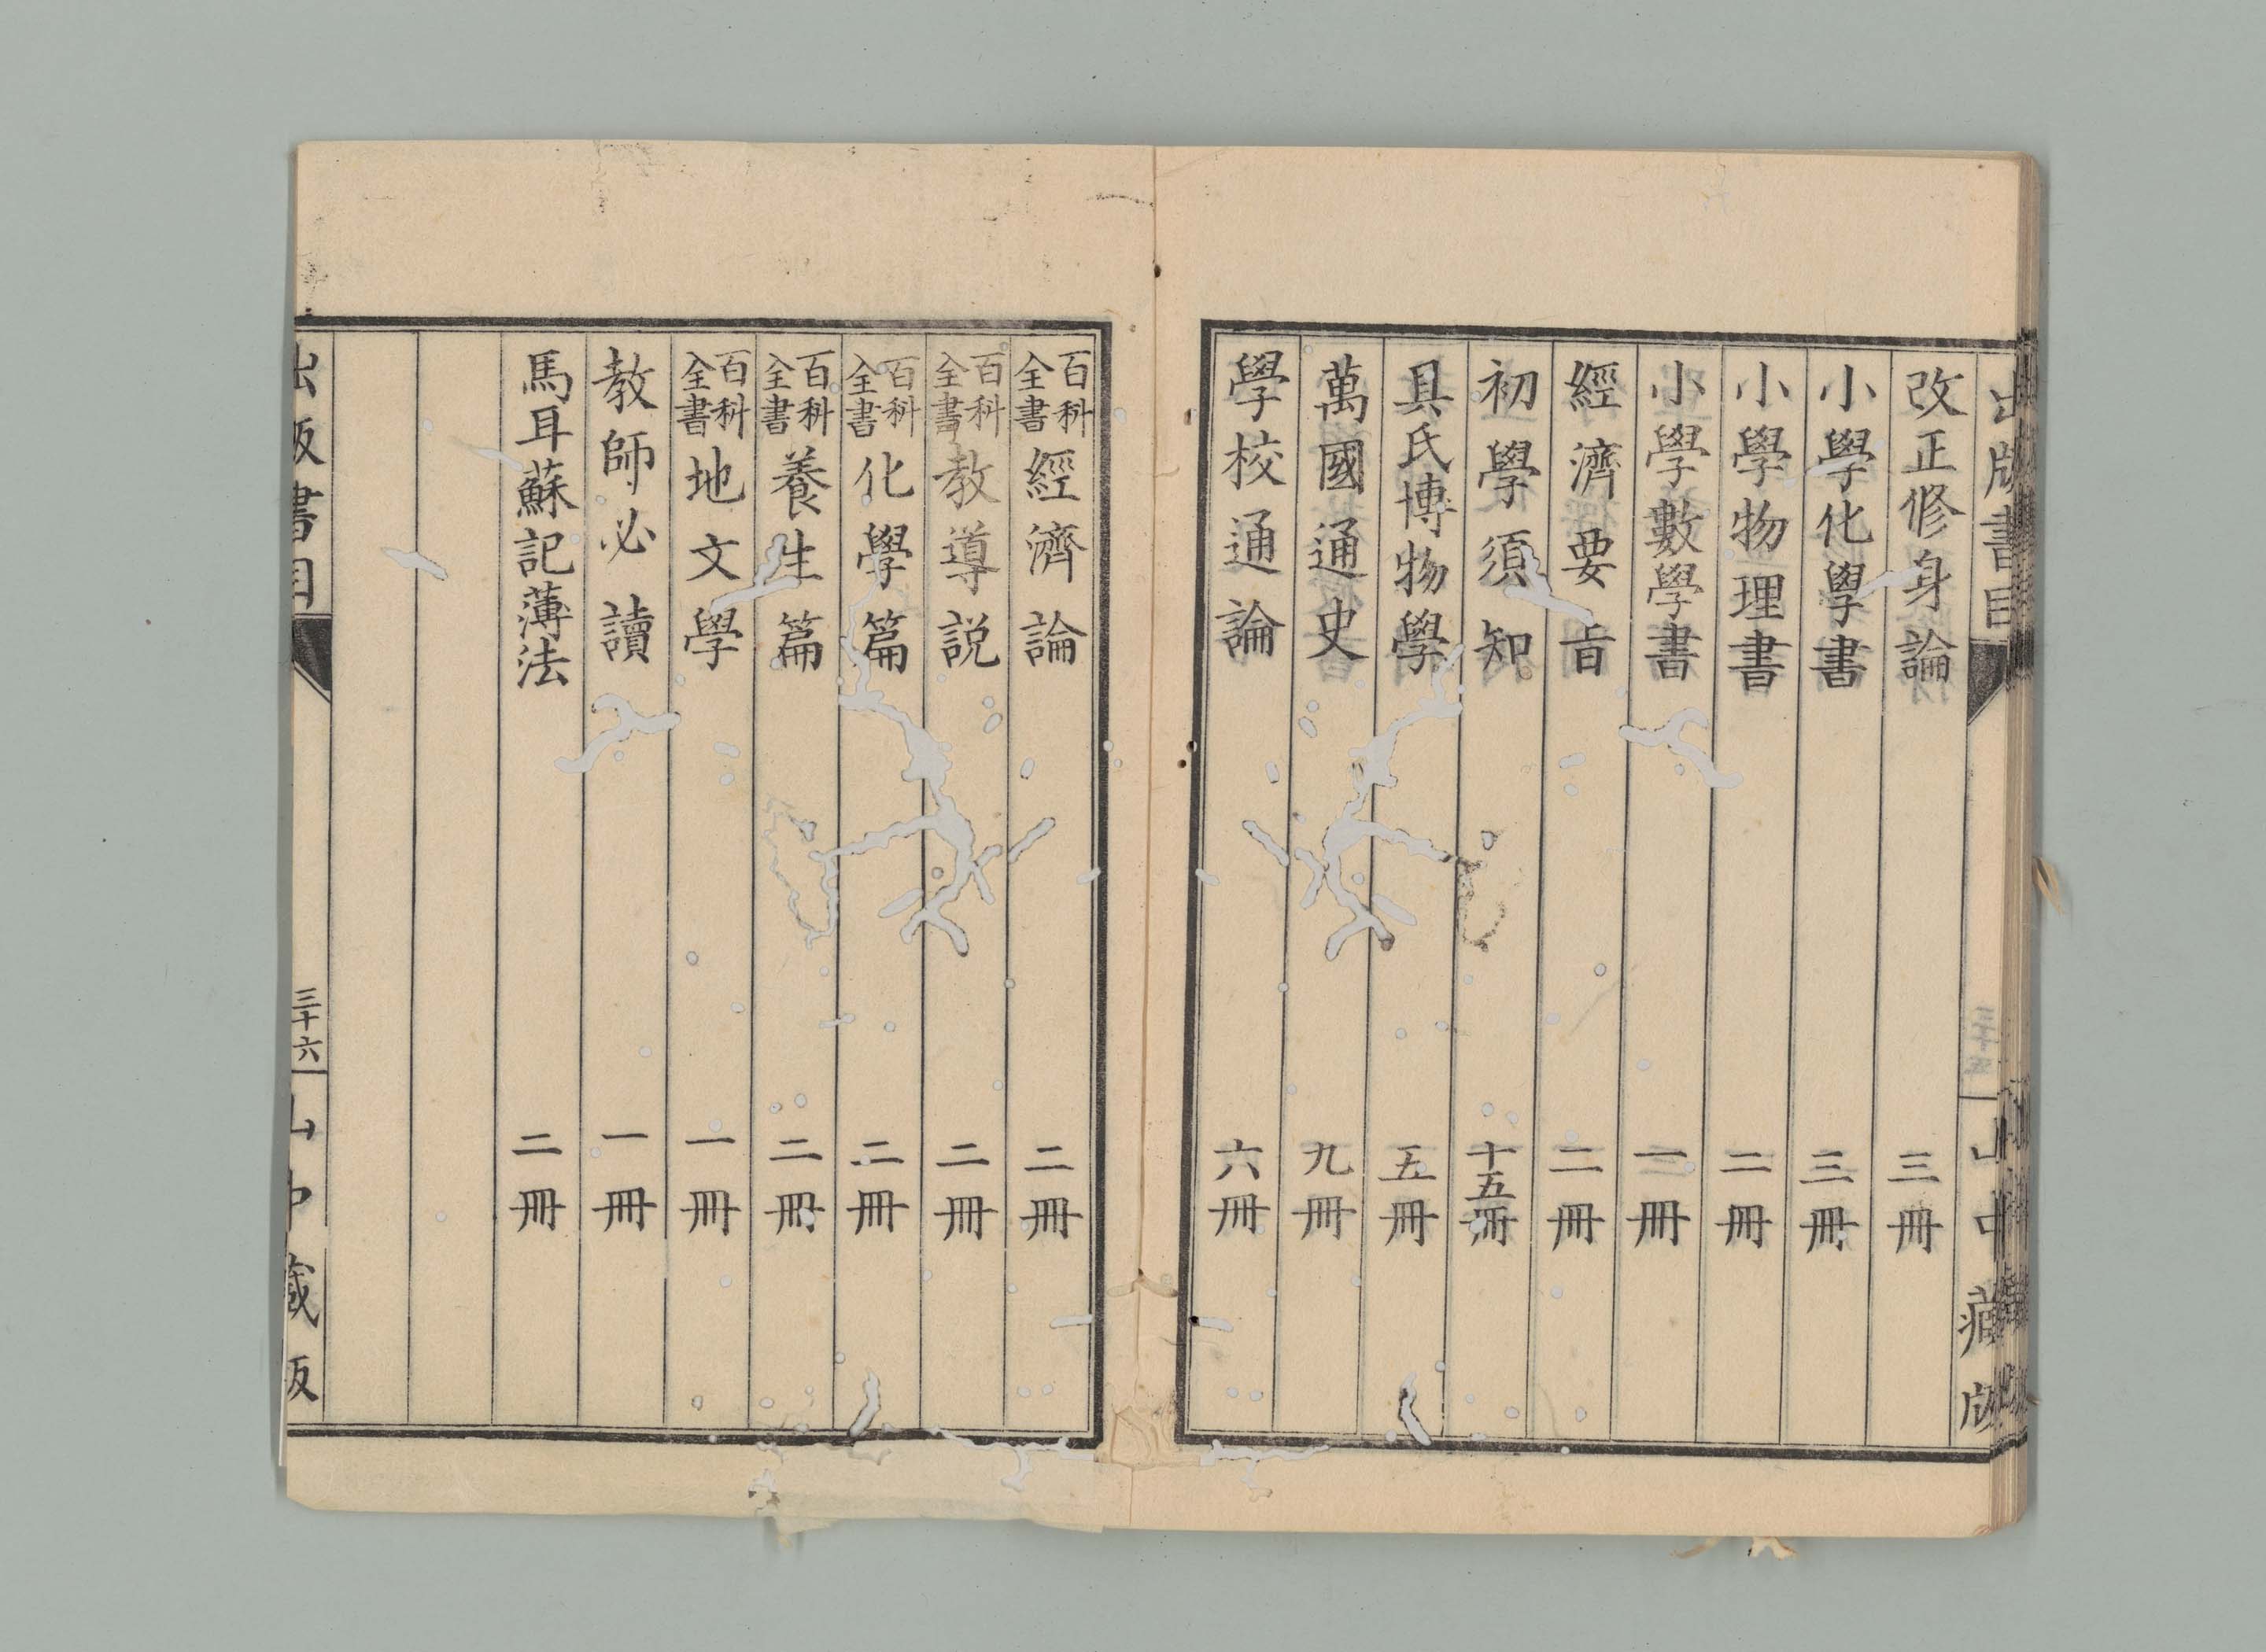 出版書目 山中藏版
改正修身論 三冊
小學化學書 三冊
小學物理書 二冊
小學數學書 一冊
經濟要旨 二冊
初學須知 十五冊
具氏博物學 五冊
萬國通史 九冊
學校通論 六冊
百科全書 經濟論 二冊
百科全書 教導説 二冊
百科全書 化學篇 二冊
百科全書 養生篇 二冊
百科全書 地文學 一冊
教師必讀 一冊
馬耳蘇記薄法 二冊
出版書目 三十六 山中藏版